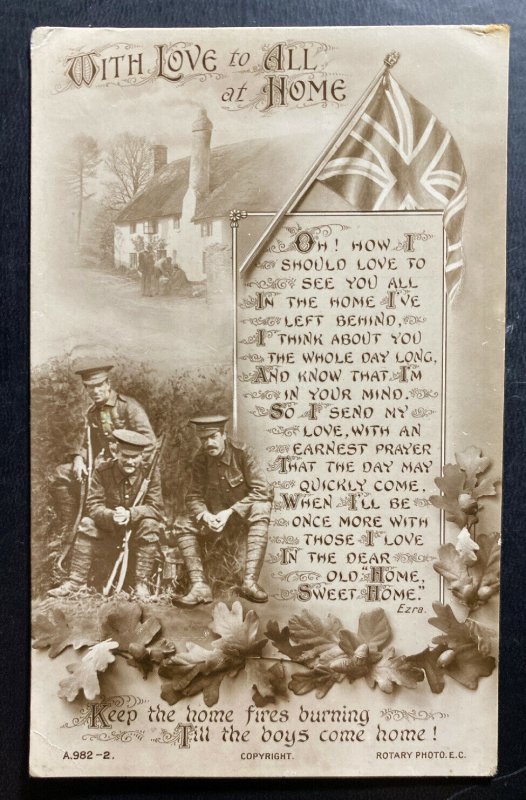 With Love to All
at Home
Oh! How I
should love to
see you all
In the home I've
left behind,
I think about you
the whole day long,
And know that I'm
in your mind.
So I send my
love, with an
earnest prayer
That the day may
quickly come,
When I'll be
once more with
those I love
In the dear
old "Home,
Sweet Home."
Ezra.
Keep the home fires burning
Till the boys come home!
A.982-2. COPYRIGHT. ROTARY PHOTO. E.C.